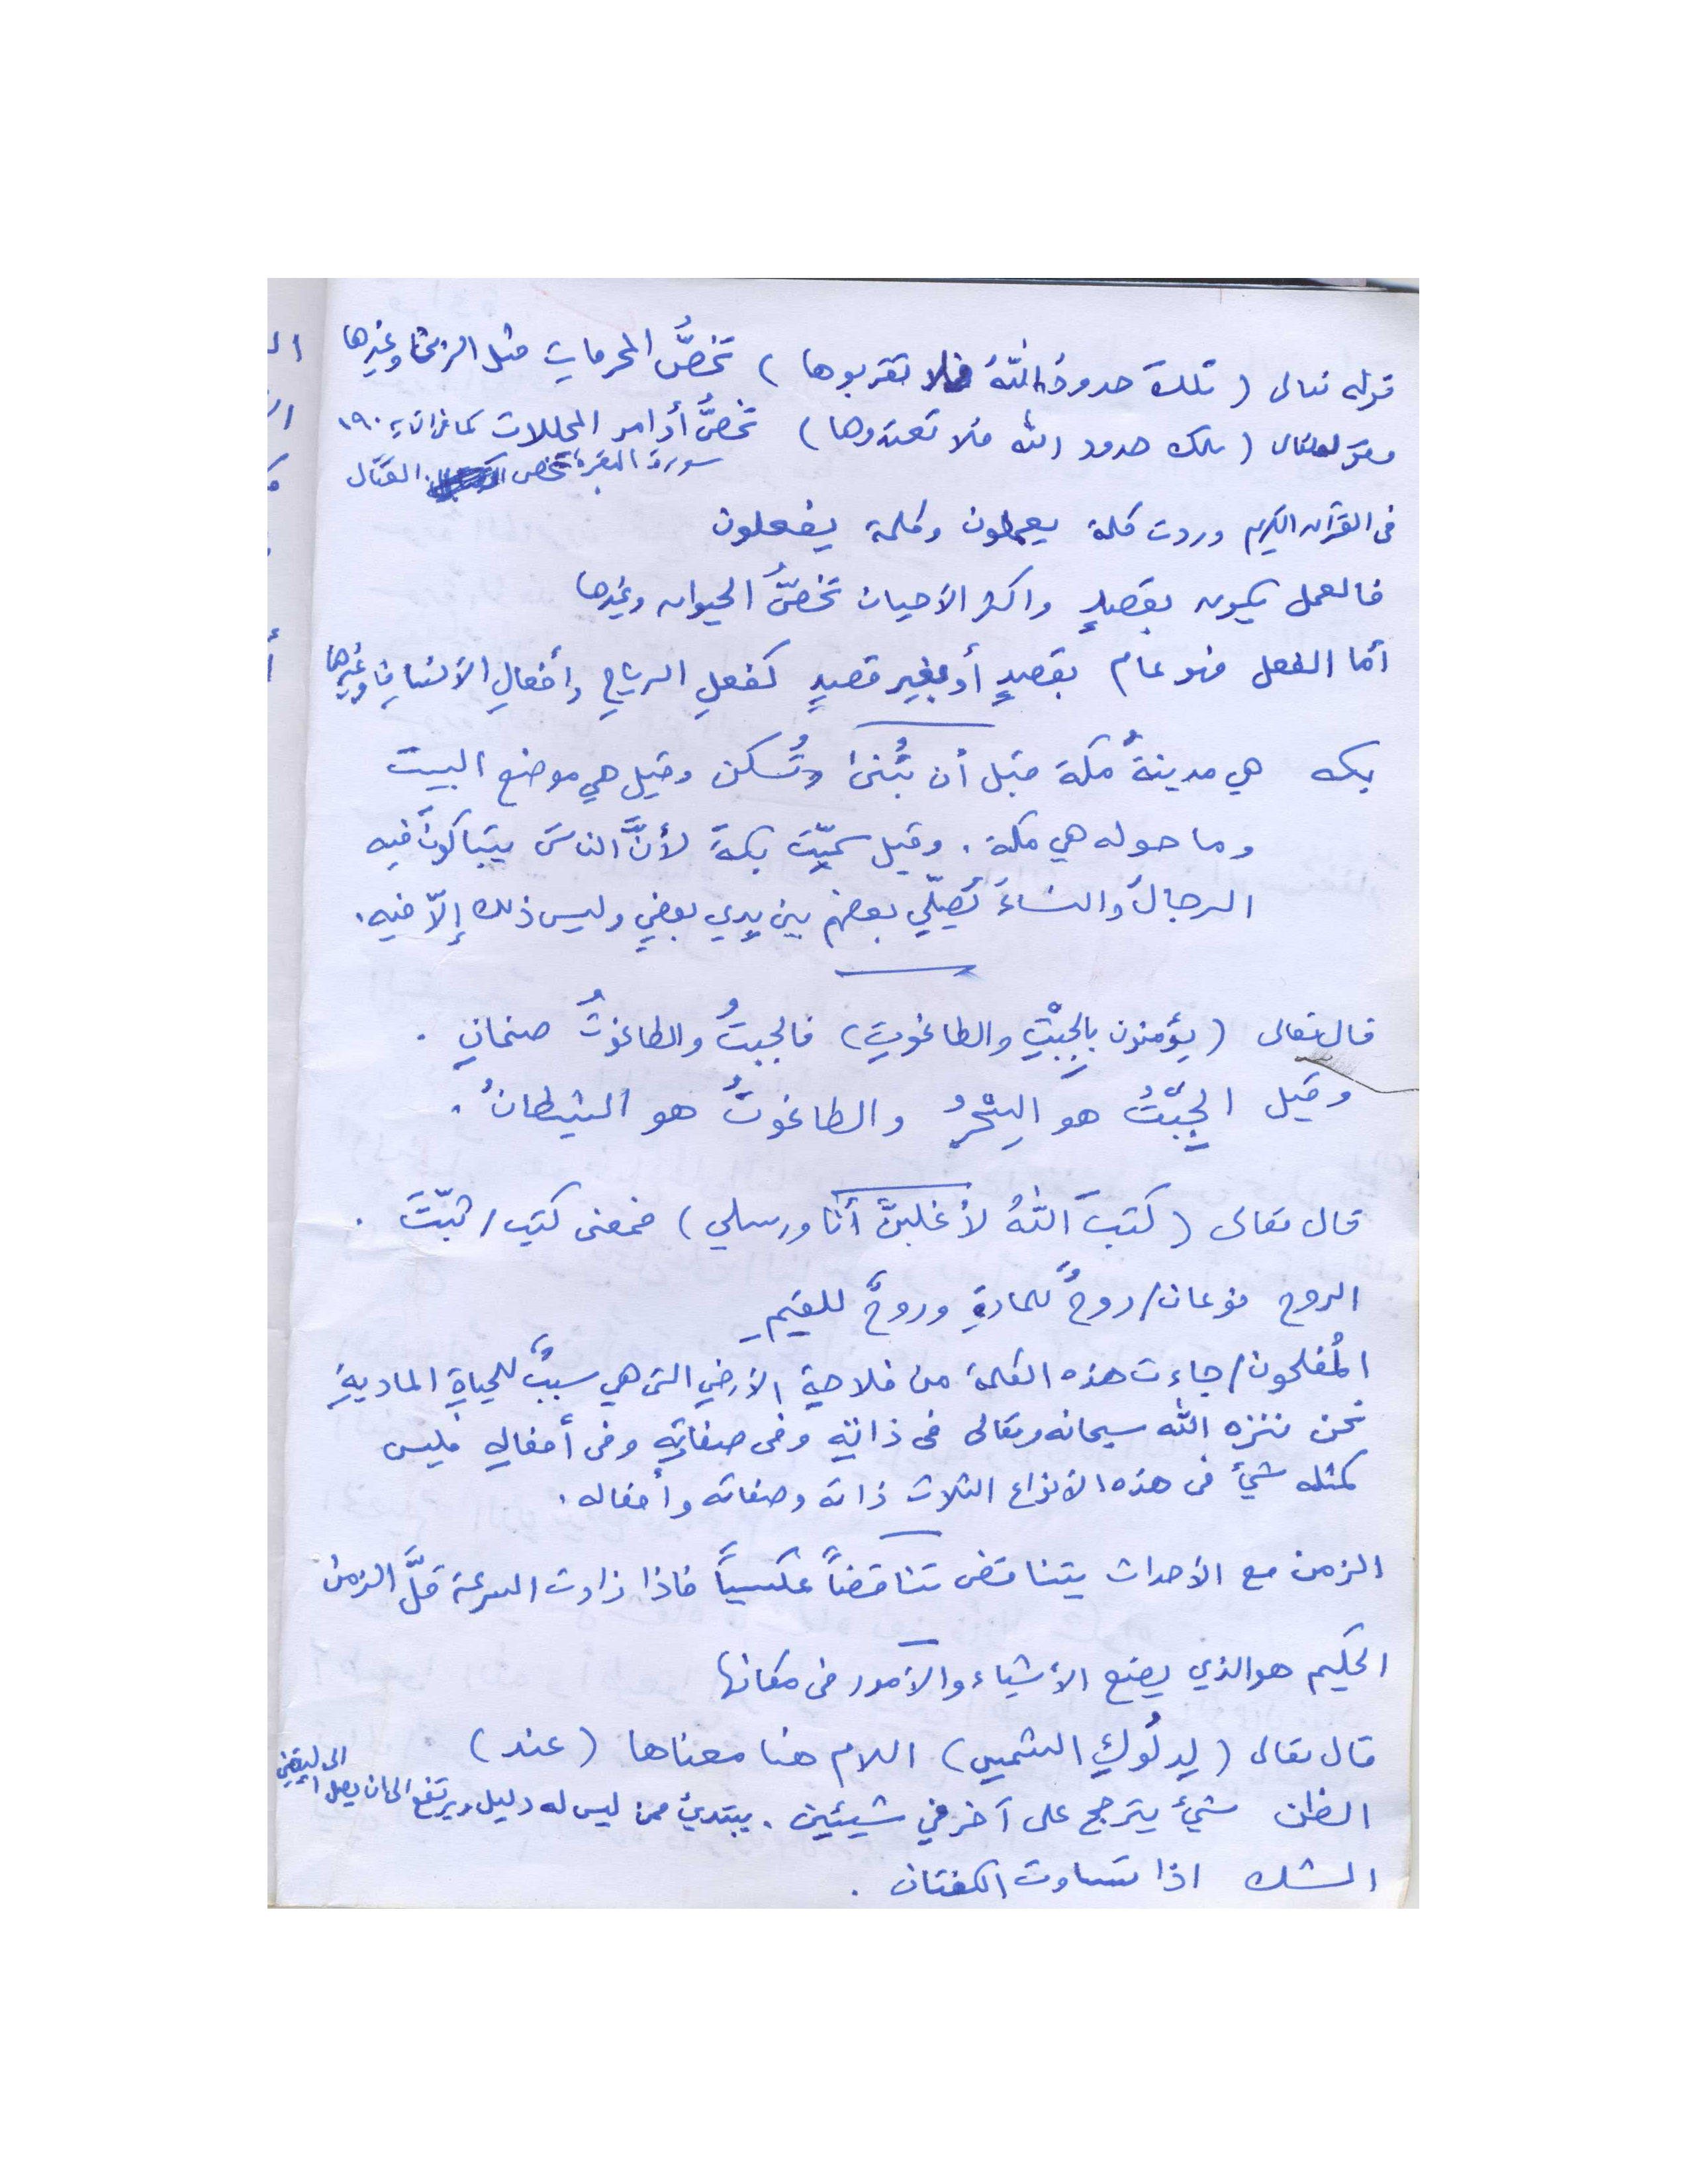 قوله تعالى ( تلكَ حدودُ اللهُ فلا تقربوها ) تخصُّ المحرماتِ مثل الزنا وغيرها
وقوله تعالى ( تلك حدود الله فلا تعتدوها ) تخصُّ أوامر المحللات كما في الآية ١٩٠
سورة البقرة تخص القتال
في القرآن الكريم وردت كلمة يعملون وكلمة يفعلون
فالعمل يكون بقصدٍ واكثر الأحيان تخصُّ الحيوان وغيرها
أما الفعل فهو عام بقصدٍ أو بغير قصدٍ كفعلِ الرياحِ وأفعالِ الأنسانِ وغيرها
بكه هي مدينةُ مكة قبل أن تُبنىٰ وتُسكن وقيل هي موضع البيت
وما حوله هي مكة . وقيل سميّت بكةَ لأنَّ الناسَ يتباكونَ فيه
الرجالَ والنساءَ تُصلّي بعضهم بين يدي بعضٍ وليس ذلك إلّا فيه .
قال تعالى ( يؤمنون بالجِبْتِ والطاغوتِ ) فالجبتُ والطاغوتُ صنمانِ .
وقيل الجِبْتُ هو السِحْرُ والطاغوتُ هو الشيطانُ .
قال تعالى ( كتبَ اللهُ لأغلبنَّ أنا ورسلي ) فمعنى كتب / ثبّتَ .
الروح نوعان / روحٌ للمادةِ وروحٌ للقيمِ
المُفلحون / جاءت هذه الكلمة من فلاحةِ الأرضِ التي هي سببٌ للحياةِ الماديةِ
نحن ننزه الله سبحانه وتعالى في ذاتِهِ وفي صفاتِهِ وفي أفعالِهِ فليس
كمثله شيءٌ في هذه الأنواع الثلاث ذاته وصفاته وأفعاله .
الزمن مع الأحداث يتناقض تناقضاً عكسياً فاذا زادت السرعة قلَّ الزمن
الحكيم هو الذي يضع الأشياء والأمور في مكانها
قال تعالى ( لِدلُوكِ الشمسِ ) اللام هنا معناها ( عند )
الظن شيءٌ يترجح على آخر في شيئين . يبتدئ ممن ليس له دليل ويرتفع الى ان يصل الى اليقين
الشك اذا تساوت الكفتان .